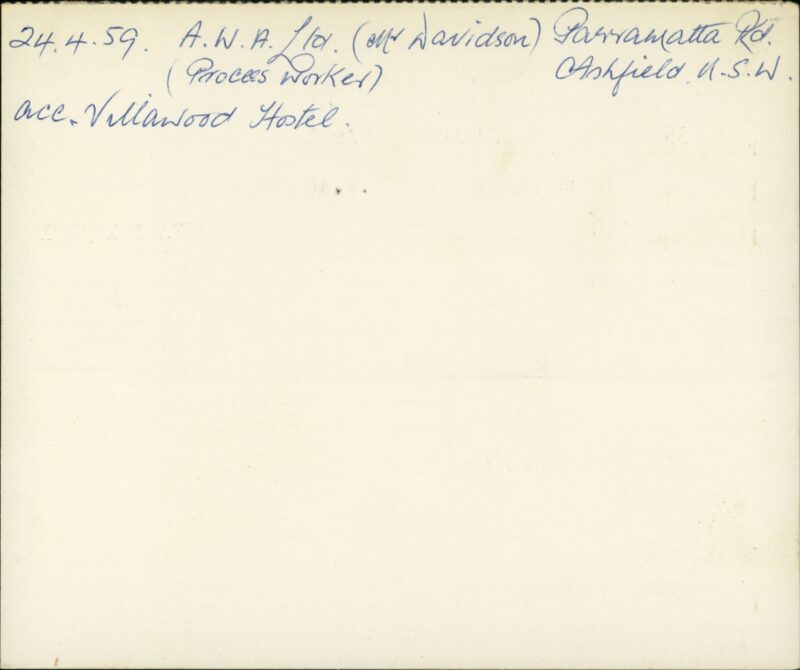 24.4.59. A.W.A. Ltd. (Mr Davidson) Parramatta Rd.
(Process Worker) Ashfield. N.S.W.
acc. Villawood Hostel.